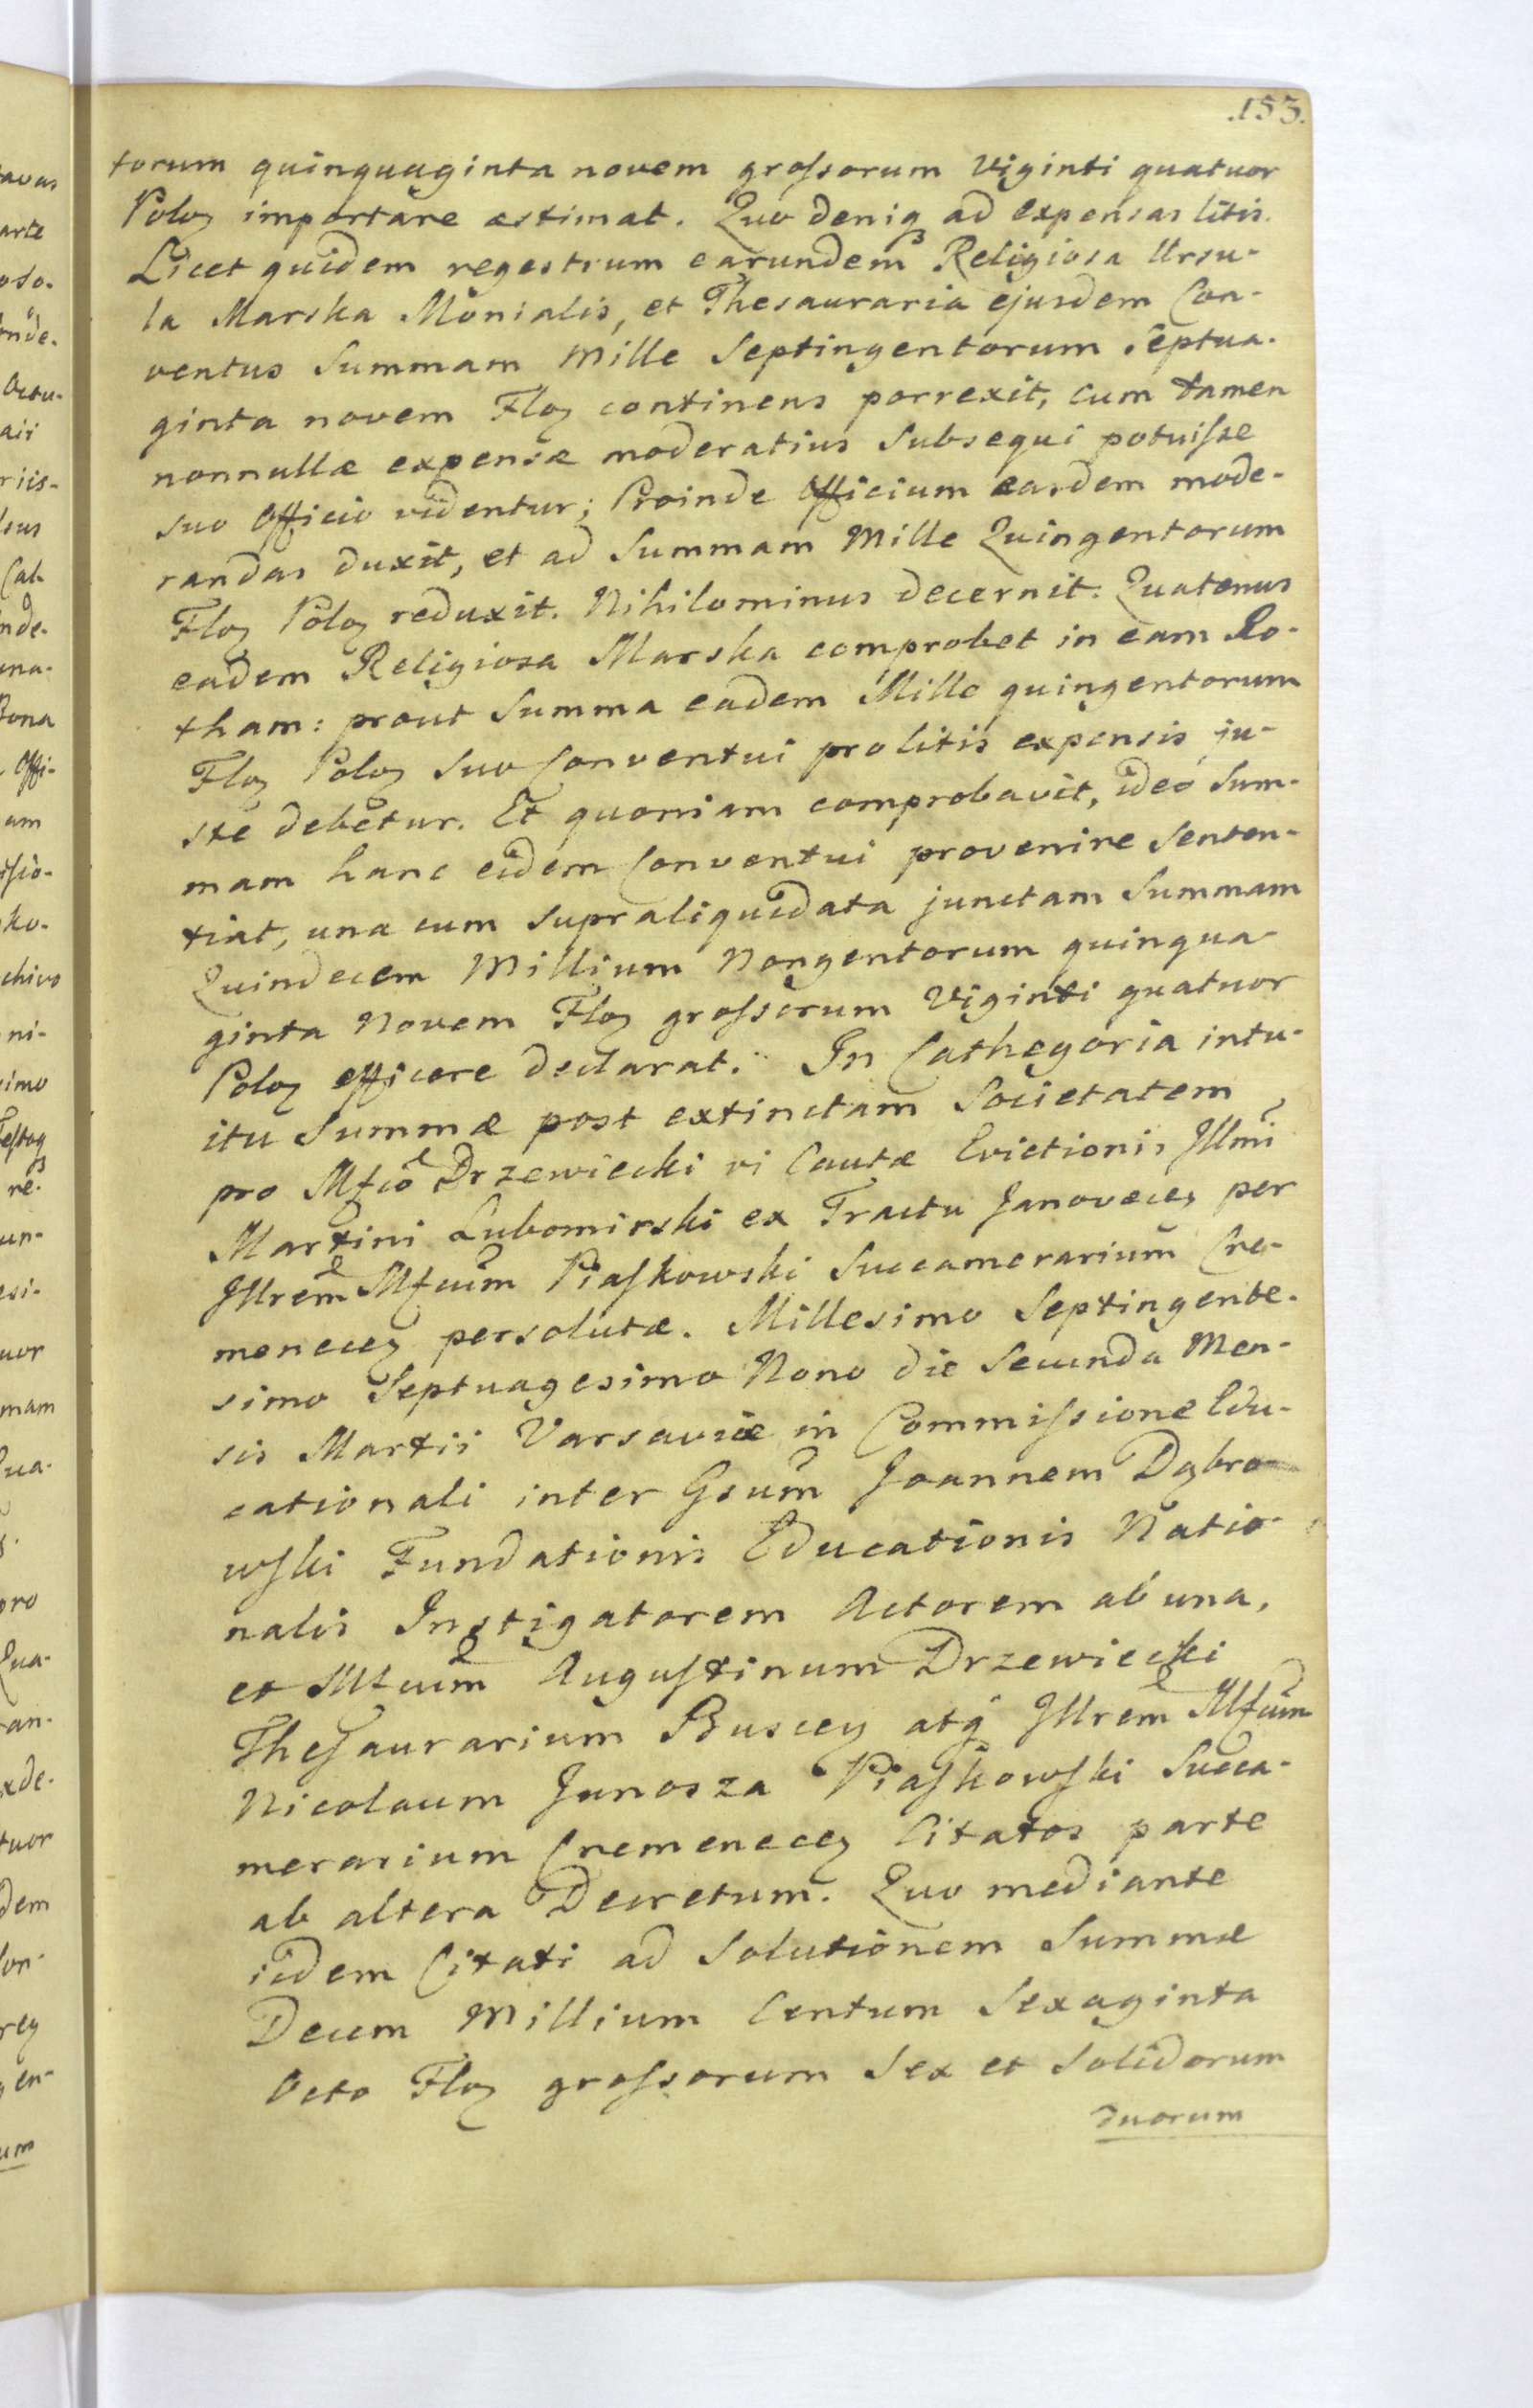 .153.
torum quinquaginta novem grossorum Viginti quatuor
Poloꝝ importare æstimat. Quo deniqꝫ ad expensas litis.
Licet quidem regestrum earundem Religiosa Ursu-
la Marska Monialis, et Thesauraria ejusdem Con-
ventus Summam Mille Septingentorum Septua-
ginta novem Floꝝ continens porrexit, cum tamen
nonnullæ expensæ moderatius Subsequi potuisse
suo Officio videntur; Proinde Officium easdem mode-
randas duxit, et ad Summam Mille Quingentorum
Floꝝ Poloꝝ reduxit. Nihilominus decernit. Quatenus
eadem Religiosa Marska comprobet in eam Ro-
tham: prout Summa eadem Mille quingentorum
Floꝝ Poloꝝ Suo Conventui pro litis expensis ju-
ste debetur. Et quoniam comprobavit, ideo Sum-
mam hanc eidem Conventui provenire Senten-
tiat, una cum supraliquidata junctam Summam
Quindecem Millium Nongentorum quinqua-
ginta Novem Floꝝ grossorum Viginti quatuor
Poloꝝ efficere declarat. In Cathegoria intu-
itu Summæ post extinctam Societatem
pro Mfco Drzewiecki vi Cautæ Evictionis Jllmi
Martini Lubomirski ex Tractu Janoveceꝫ per
Jllrem Mfcum Piaskowski Succamerarium Cre-
meneceꝫ persolutæ. Millesimo Septingente-
simo Septuagesimo Nono die Secunda Men-
sis Martii Varsaviæ in Commissione Edu-
cationali inter Gsum Joannem Dąbro-
wski Fundationis Educationis Natio-
nalis Instigatorem Actorem ab una,
et Mfcum Augustinum Drzewiecki
Thesaurarium Busceꝫ atqꝫ Jllrem Mfcum
Nicolaum Junosza Piaskowski Succa-
merarium Cremeneceꝫ Citatos parte
ab altera Decretum. Quo mediante
iidem Citati ad Solutionem Summæ
Decem Millium Centum Sexaginta
Octo Floꝝ grossorum Sex et Solidorum
duorum